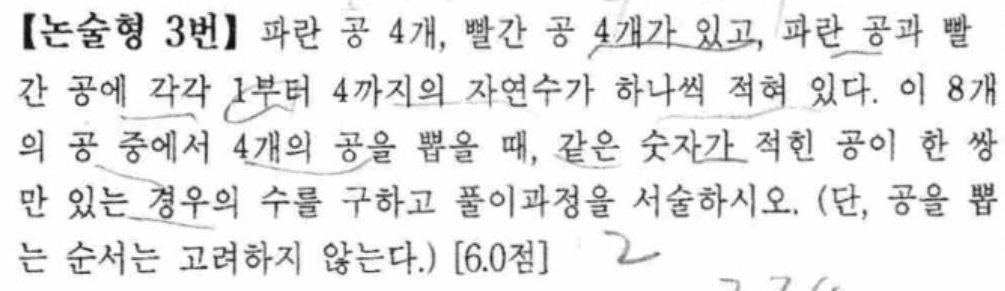 【논술형 3번】 파란 공 4개, 빨간 공 4개가 있고, 파란 공과 빨
간 공에 각각 1부터 4까지의 자연수가 하나씩 적혀 있다. 이 8개
의 공 중에서 4개의 공을 뽑을 때, 같은 숫자가 적힌 공이 한 쌍
만 있는 경우의 수를 구하고 풀이과정을 서술하시오. (단, 공을 뽑
는 순서는 고려하지 않는다.) [6.0점]
2